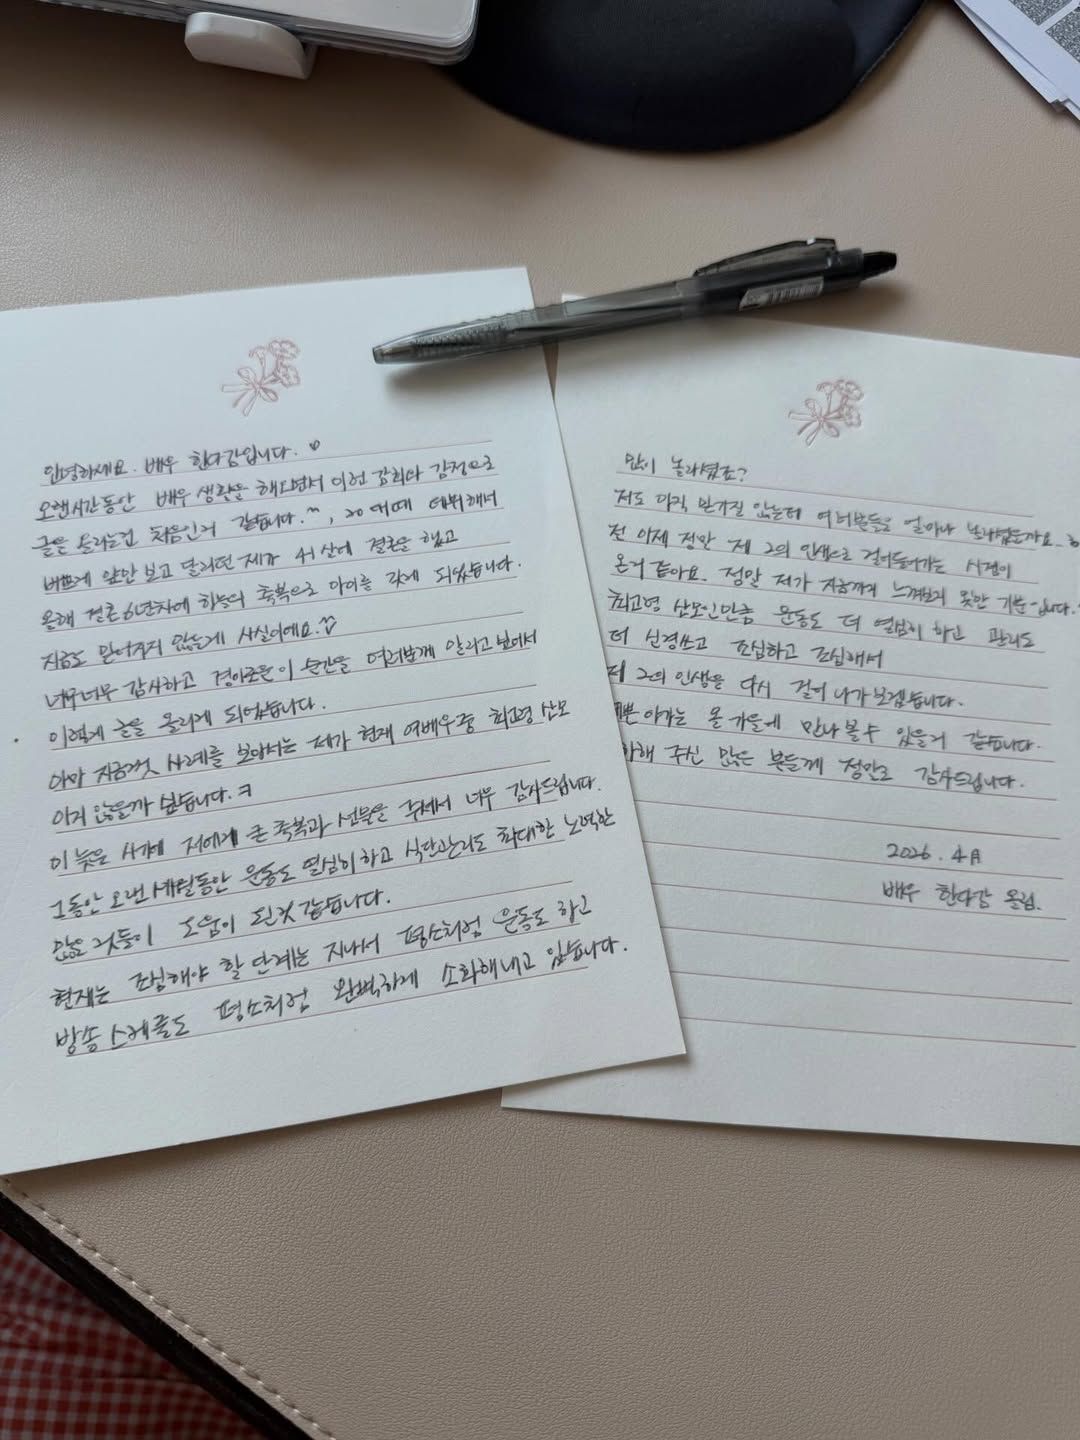 안녕하세요. 배우 한다감입니다. ♡
오랜시간동안 배우 생활을 해오면서 이런 감회와 감정으로
글을 올리는건 처음인거 같습니다.^^, 20대때 데뷔해서
바쁘게 앞만 보고 달리던 제가 41살에 결혼을 했고
올해 결혼 6년차에 하늘의 축복으로 아이를 갖게 되었습니다.
지금도 믿어지지 않는데 사실이에요.
너무너무 감사하고 경이로운 이 순간을 여러분께 알리고 보여서
이렇게 글을 올리게 되었습니다.
아마 지금껏 사례를 보아서는 제가 현재 여배우중 최고령 산모
이지 않을까 싶습니다.ㅋ
이 늦은 시기에 저에게 큰 축복과 선물을 주셔서 너무 감사드립니다.
그동안 오랜 세월동안 운동도 열심히 하고 식단관리도 최대한 노력한
많은 것들이 도움이 된것 같습니다.
현재는 조심해야 할 단계는 지나서 평소처럼 운동도 하고
방송 스케쥴도 평소처럼 완벽하게 소화해내고 있습니다.
많이 놀라셨죠?
저도 아직 믿기질 않는데 여러분들은 얼마나 놀라셨을까요.
전 이제 정말 제 2의 인생으로 걸어들어가는 시점이
온거 같아요. 정말 저가 지금까지 느껴보지 못한 기분입니다.
최고령 산모인만큼 운동도 더 열심히 하고 관리도
더 신경쓰고 조심하고 조심해서
제 2의 인생을 다시 걸어 나가보겠습니다.
예쁜 아가는 올 가을에 만나 볼 수 있을거 같습니다.
하해 주신 많은 분들께 정말로 감사드립니다.
2026. 4月
배우 한다감 올림.